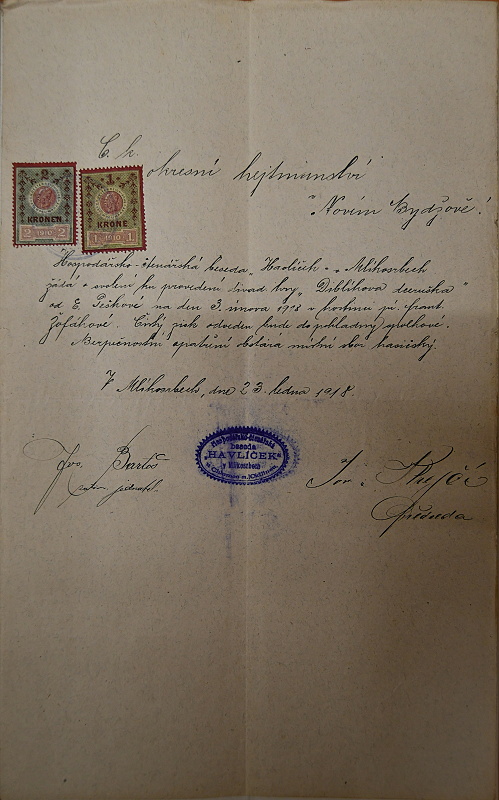 C. k. okresní hejtmanství
v Novém Bydžově!
2
KRONEN
2 1910 2
1
KRONE
1 1910 1
Hospodářsko-čtenářská beseda „Havlíček" v Mlékosrbech
žádá o svolení ku provedení divad. hry „Diblíkova dceruška"
od E. Peškové na den 3. února 1918 v hostinci p. Frant.
Žofákové. Čistý zisk odveden bude do pokladny spolkové.
Bezpečnostní opatření obstará místní sbor hasičský.
V Mlékosrbech, dne 23. ledna 1918.
Hospodářsko-čtenářská
beseda
„HAVLÍČEK"
v Mlékosrbech
Jos. Bartoš
jednatel.
Krejčí
předseda